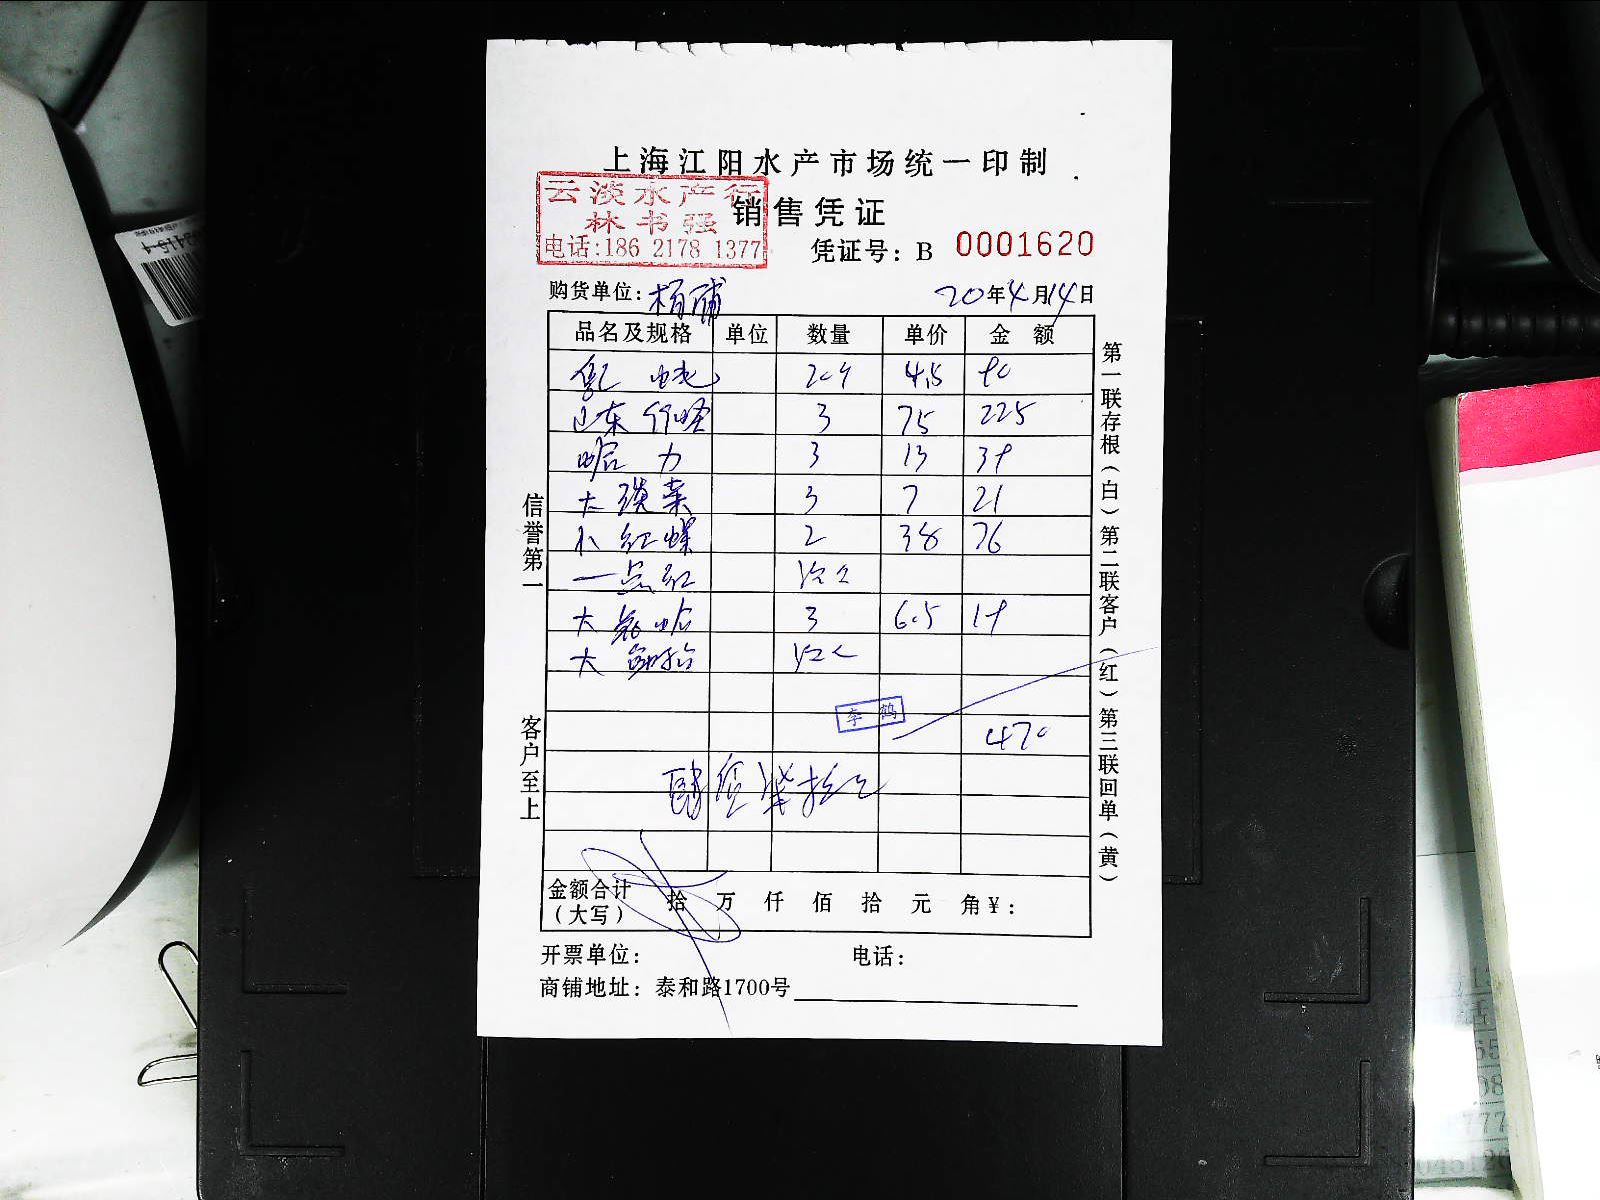 上海江阳水产市场统一印制
云淡水产行
林书强
电话:186 2178 1377
销售凭证
凭证号：B 0001620
购货单位：杨浦 20年4月14日
品名及规格 单位 数量 单价 金额
4.5 90
3 75 225
哈力 3 13 39
大 菜 3 7 21
小红蝶 2 38 76
一点红
大 哈 3 6.5 19
大
李 鹤
470
肆佰柒拾元
金额合计（大写） 拾 万 仟 佰 拾 元 角￥：
开票单位： 电话：
商铺地址：泰和路1700号
信誉第一
客户至上
第一联存根（白）第二联客户（红）第三联回单（黄）